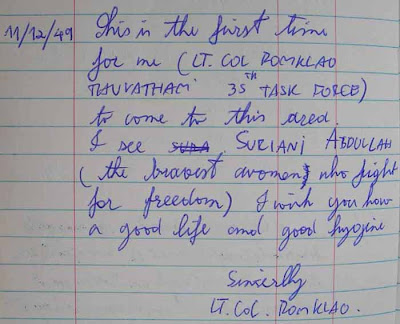 11/12/49 This is the first time
for me (LT. COL ROMKLAO
THUVATHAM 35TH TASK FORCE)
to come to this area.
I see SURIANI ABDULLAH
(the bravest women who fight
for freedom) I wish you how
a good life and good hygine
Sincerlly
LT. COL. ROMKLAO.